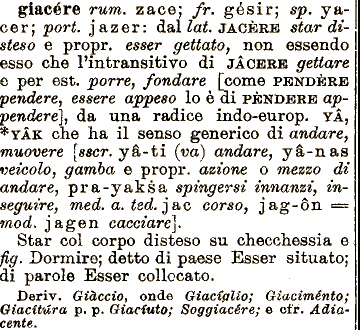 giacére rum. zace; fr. gésir; sp. ya-
cer; port. jazer: dal lat. JACÈRE star di-
steso e propr. esser gettato, non essendo
esso che l'intransitivo di JÂCERE gettare
e per est. porre, fondare [come PENDÈRE
pendere, essere appeso lo è di PÈNDERE ap-
pendere], da una radice indo-europ. YÂ,
*YÂK che ha il senso generico di andare,
muovere [sscr. yâ-ti (va) andare, yâ-nas
veicolo, gamba e propr. azione o mezzo di
andare, pra-yakša spingersi innanzi, in-
seguire, med. a. ted. jac corso, jag-ôn =
mod. jagen cacciare].
Star col corpo disteso su checchessia e
fig. Dormire; detto di paese Esser situato;
di parole Esser collocato.
Deriv. Giàccio, onde Giacíglio; Giaciménto;
Giacitúra p. p. Giaciuto; Soggiacére; e cfr. Adia-
cente.